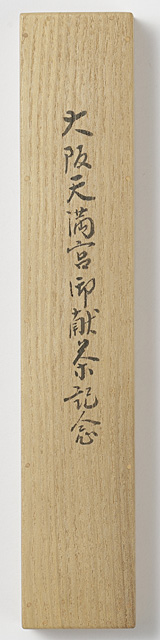 大阪天満宮御献茶記念